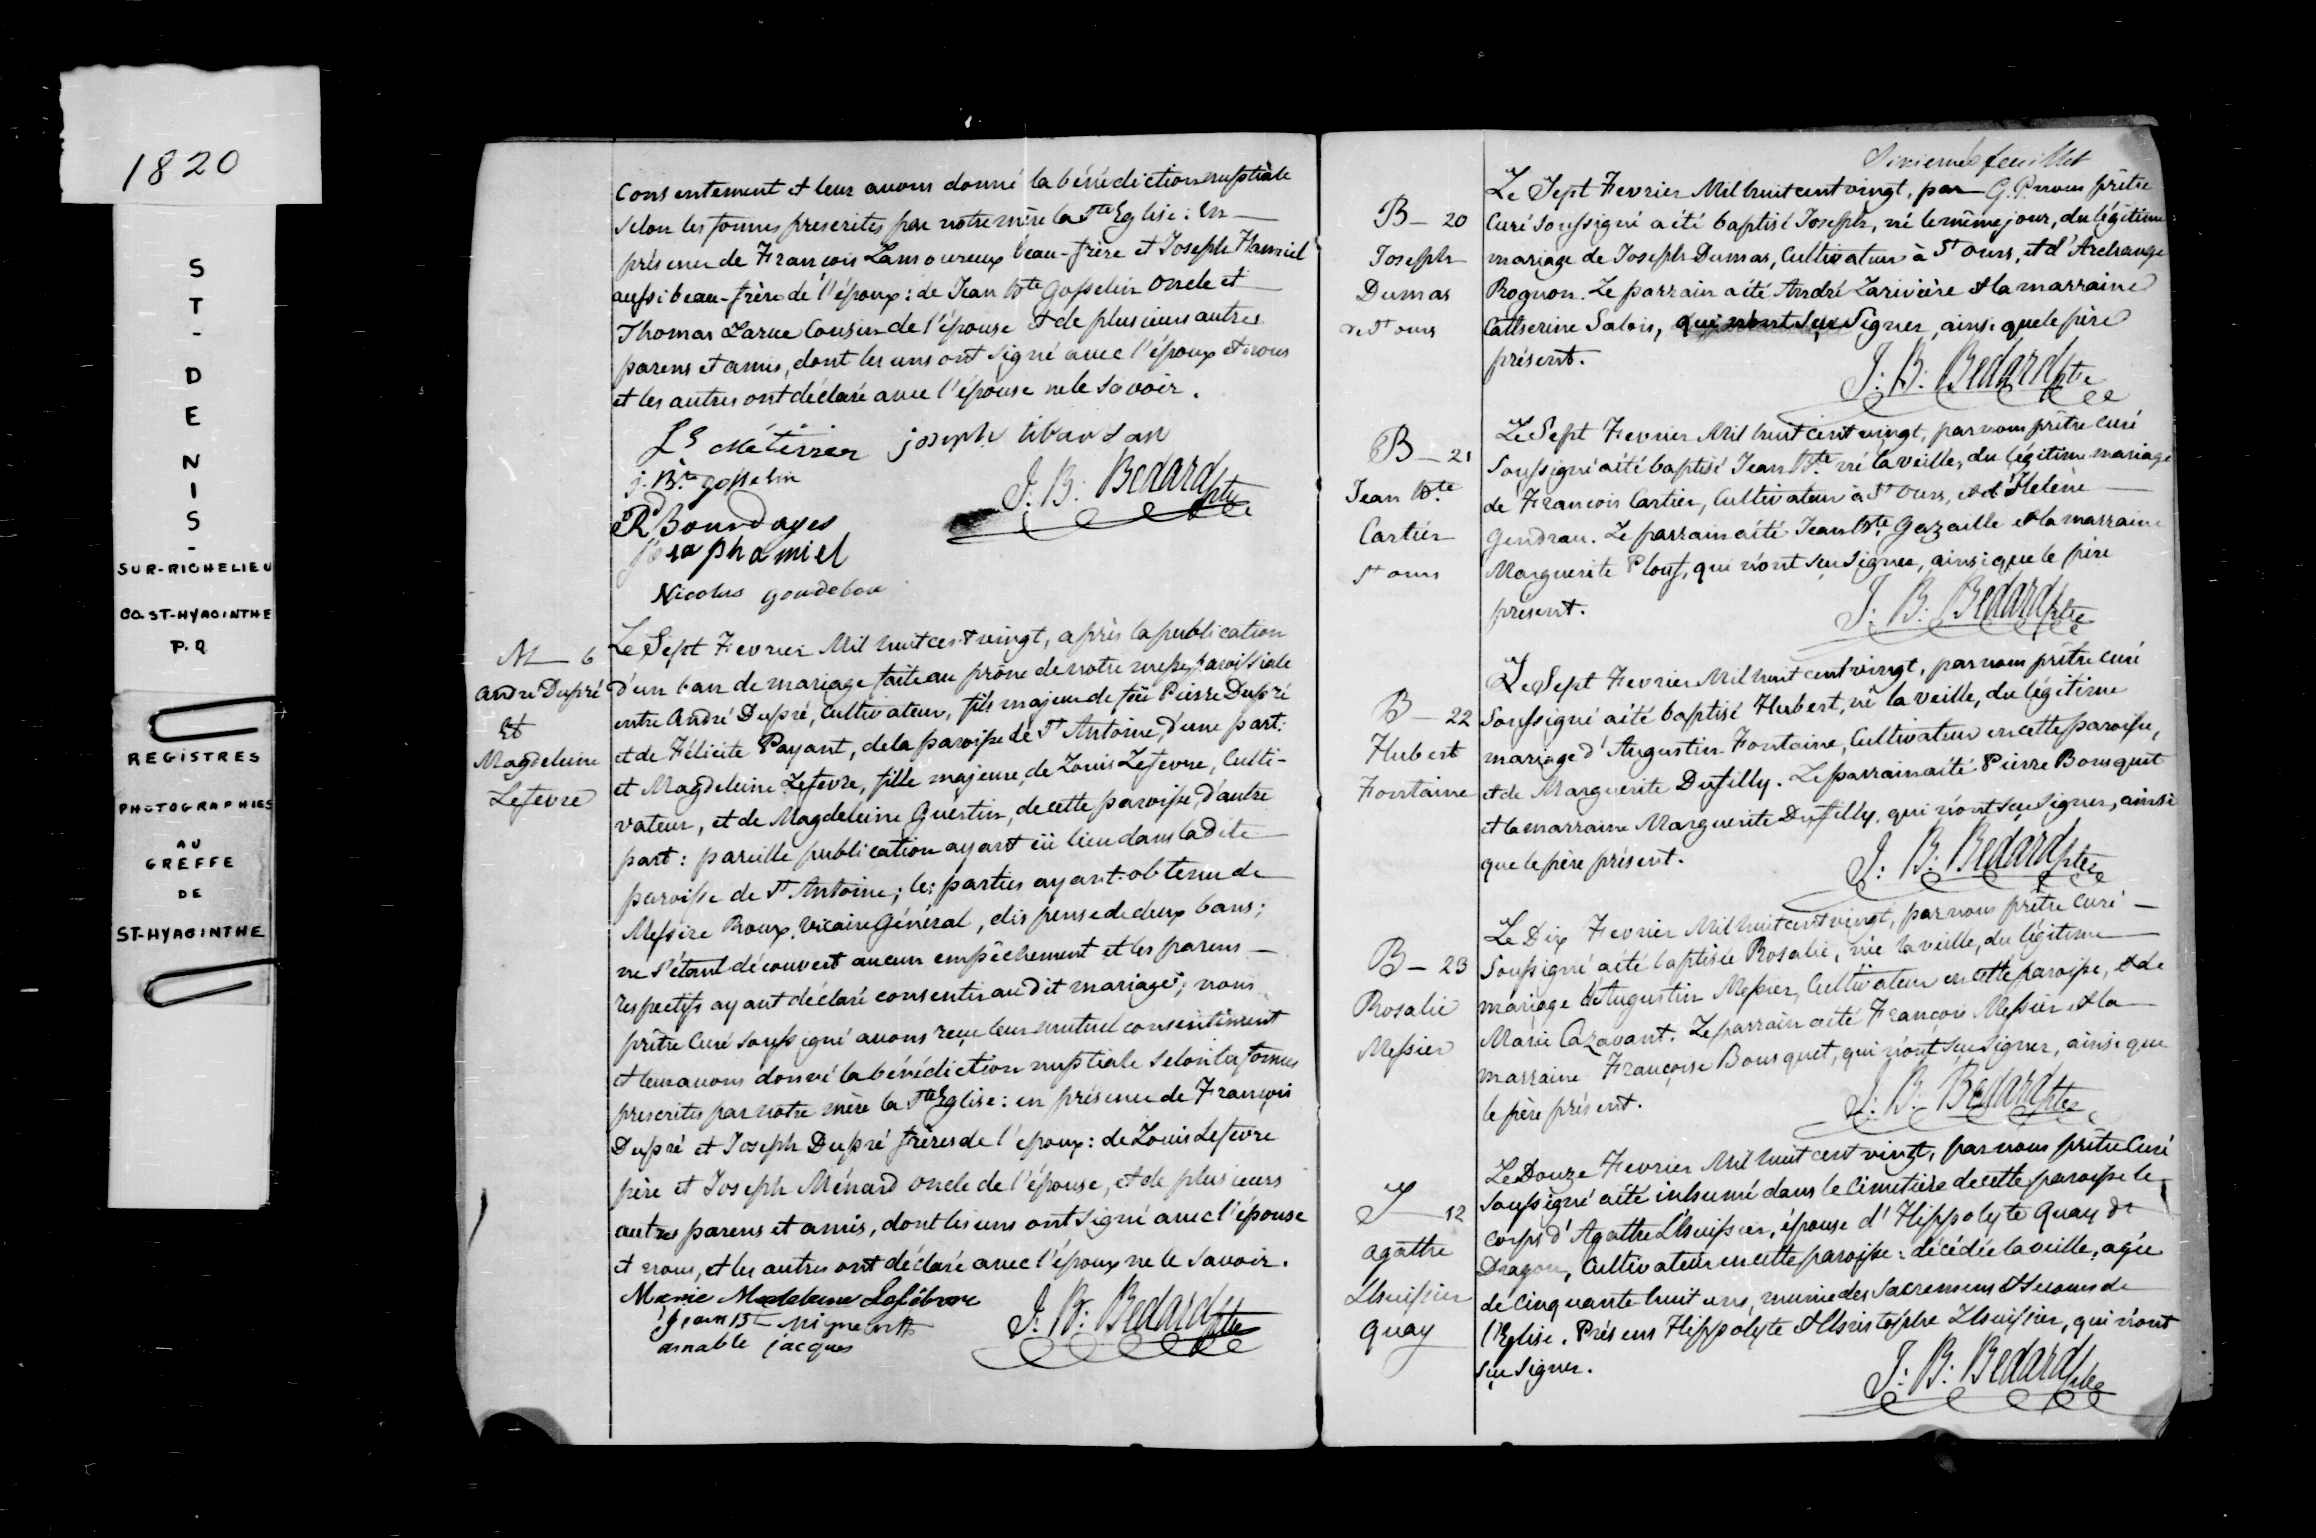 1820
S
T
-
D
E
N
I
S
-
SUR-RICHELIEU
CO. ST-HYACINTHE
P.Q
REGISTRES
PHOTOGRAPHIES
AU
GREFFE
DE
ST-HYACINTHE
consentement et leur avons donné la bénédiction nuptiale
selon les formes prescrites par notre mère la Ste Eglise : En
présence de François Lamoureux beau-frère et Joseph Hamiel
aussi beau-frère de l'époux : de Jean Bte Gosselin oncle et
Thomas Larue Cousin de l'épouse et de plusieurs autres
parens et amis, dont les uns ont signé avec l'époux et nous
et les autres ont déclaré avec l'épouse ne le savoir.
Ls Métivier joseph
j. Bte gosselin
J: B: Bedard ptre
R Bourdages
josaph amiel
Nicolas
M — 6
André Dupré
Et
Magdeleine
Lefevre
Le Sept Fevrier Mil huit cent vingt, après la publication
d'un ban de mariage faite au prône de notre messe paroissiale
entre André Dupré, Cultivateur, fils majeur de feü Pierre Dupré
et de Félicité Payant, de la paroisse de St Antoine, d'une part:
et Magdeleine Lefevre, fille majeure de Louis Lefevre, Culti-
vateur, et de Magdeleine Guertin, de cette paroisse, d'autre
part : pareille publication ayant eü lieu dans la dite
paroisse de St Antoine ; les parties ayant obtenu de
Messire Roux, Vicaire Général, dispense de deux bans ;
ne s'étant découvert aucun empêchement et les parens
respectifs ayant déclaré consentir au dit mariage ; nous
prêtre Curé soussigné avons reçu leur mutuel consentement
et leur avons donné la bénédiction nuptiale selon les formes
prescrites par notre mère la Ste Eglise : en présence de François
Dupré et Joseph Dupré frères de l'époux : de Louis Lefevre
père et Joseph Ménard oncle de l'épouse, et de plusieurs
autres parens et amis, dont les uns ont signé avec l'épouse
et nous, et les autres ont déclaré avec l'époux ne le savoir.
Marie Lefébvre
J: B: Bedard ptre
amable jacques
Sixième feuillet
B — 20
Joseph
Dumas
de St ours
Le Sept Fevrier Mil huit cent vingt, par nous prêtre
Curé soussigné a été baptisé Joseph, né le même jour, du légitime
mariage de Joseph Dumas, Cultivateur à St Ours, et d'Archange
Rognon. Le parrain a été André Larivière et la marraine
Catherine Salois, qui n'ont sçu Signer, ainsi que le père
présent.
J: B: Bedard ptre
B — 21
Jean Bte
Cartier
St ours
Le Sept Fevrier Mil huit cent vingt, par nous prêtre curé
soussigné a été baptisé Jean Bte né la veille, du légitime mariage
de François Cartier, Cultivateur à St Ours, et d'Helène
Gendrau. Le parrain a été Jean Bte Gazaille et la marraine
Marguerite Plouf, qui n'ont sçu signer, ainsi que le père
présent.
J: B: Bedard ptre
B — 22
Hubert
Fontaine
Le Sept Fevrier Mil huit cent vingt, par nous prêtre curé
soussigné a été baptisé Hubert, né la veille, du légitime
mariage d'Augustin Fontaine, Cultivateur en cette paroisse,
et de Marguerite Dufilly. Le parrain a été Pierre Bousquet
et la marraine Marguerite Dufilly, qui n'ont sçu signer, ainsi
que le père présent.
J: B: Bedard ptre
B — 23
Rosalie
Messier
Le Dix Fevrier Mil huit cent vingt, par nous prêtre curé
soussigné a été baptisée Rosalie, née la veille, du légitime
mariage d'Augustin Messier, Cultivateur en cette paroisse, et de
Marie Cazavant. Le parrain a été François Messier et la
marraine Françoise Bousquet, qui n'ont sçu signer, ainsi que
le père présent.
J: B: Bedard ptre
S — 12
Agathe
Lhuissier
Quay
Le Douze Fevrier Mil huit cent vingt, par nous prêtre Curé
soussigné a été inhumé dans le Cimetière de cette paroisse le
corps d'Agathe Lhuissier, épouse d'Hippolyte Quay dt
Dragon, Cultivateur en cette paroisse : décédée la veille, agée
de Cinquante huit ans, munie des sacremens et secours de
l'Eglise. Présens Hippolyte et Christophe Lhuissier, qui n'ont
sçu signer.
J: B: Bedard ptre